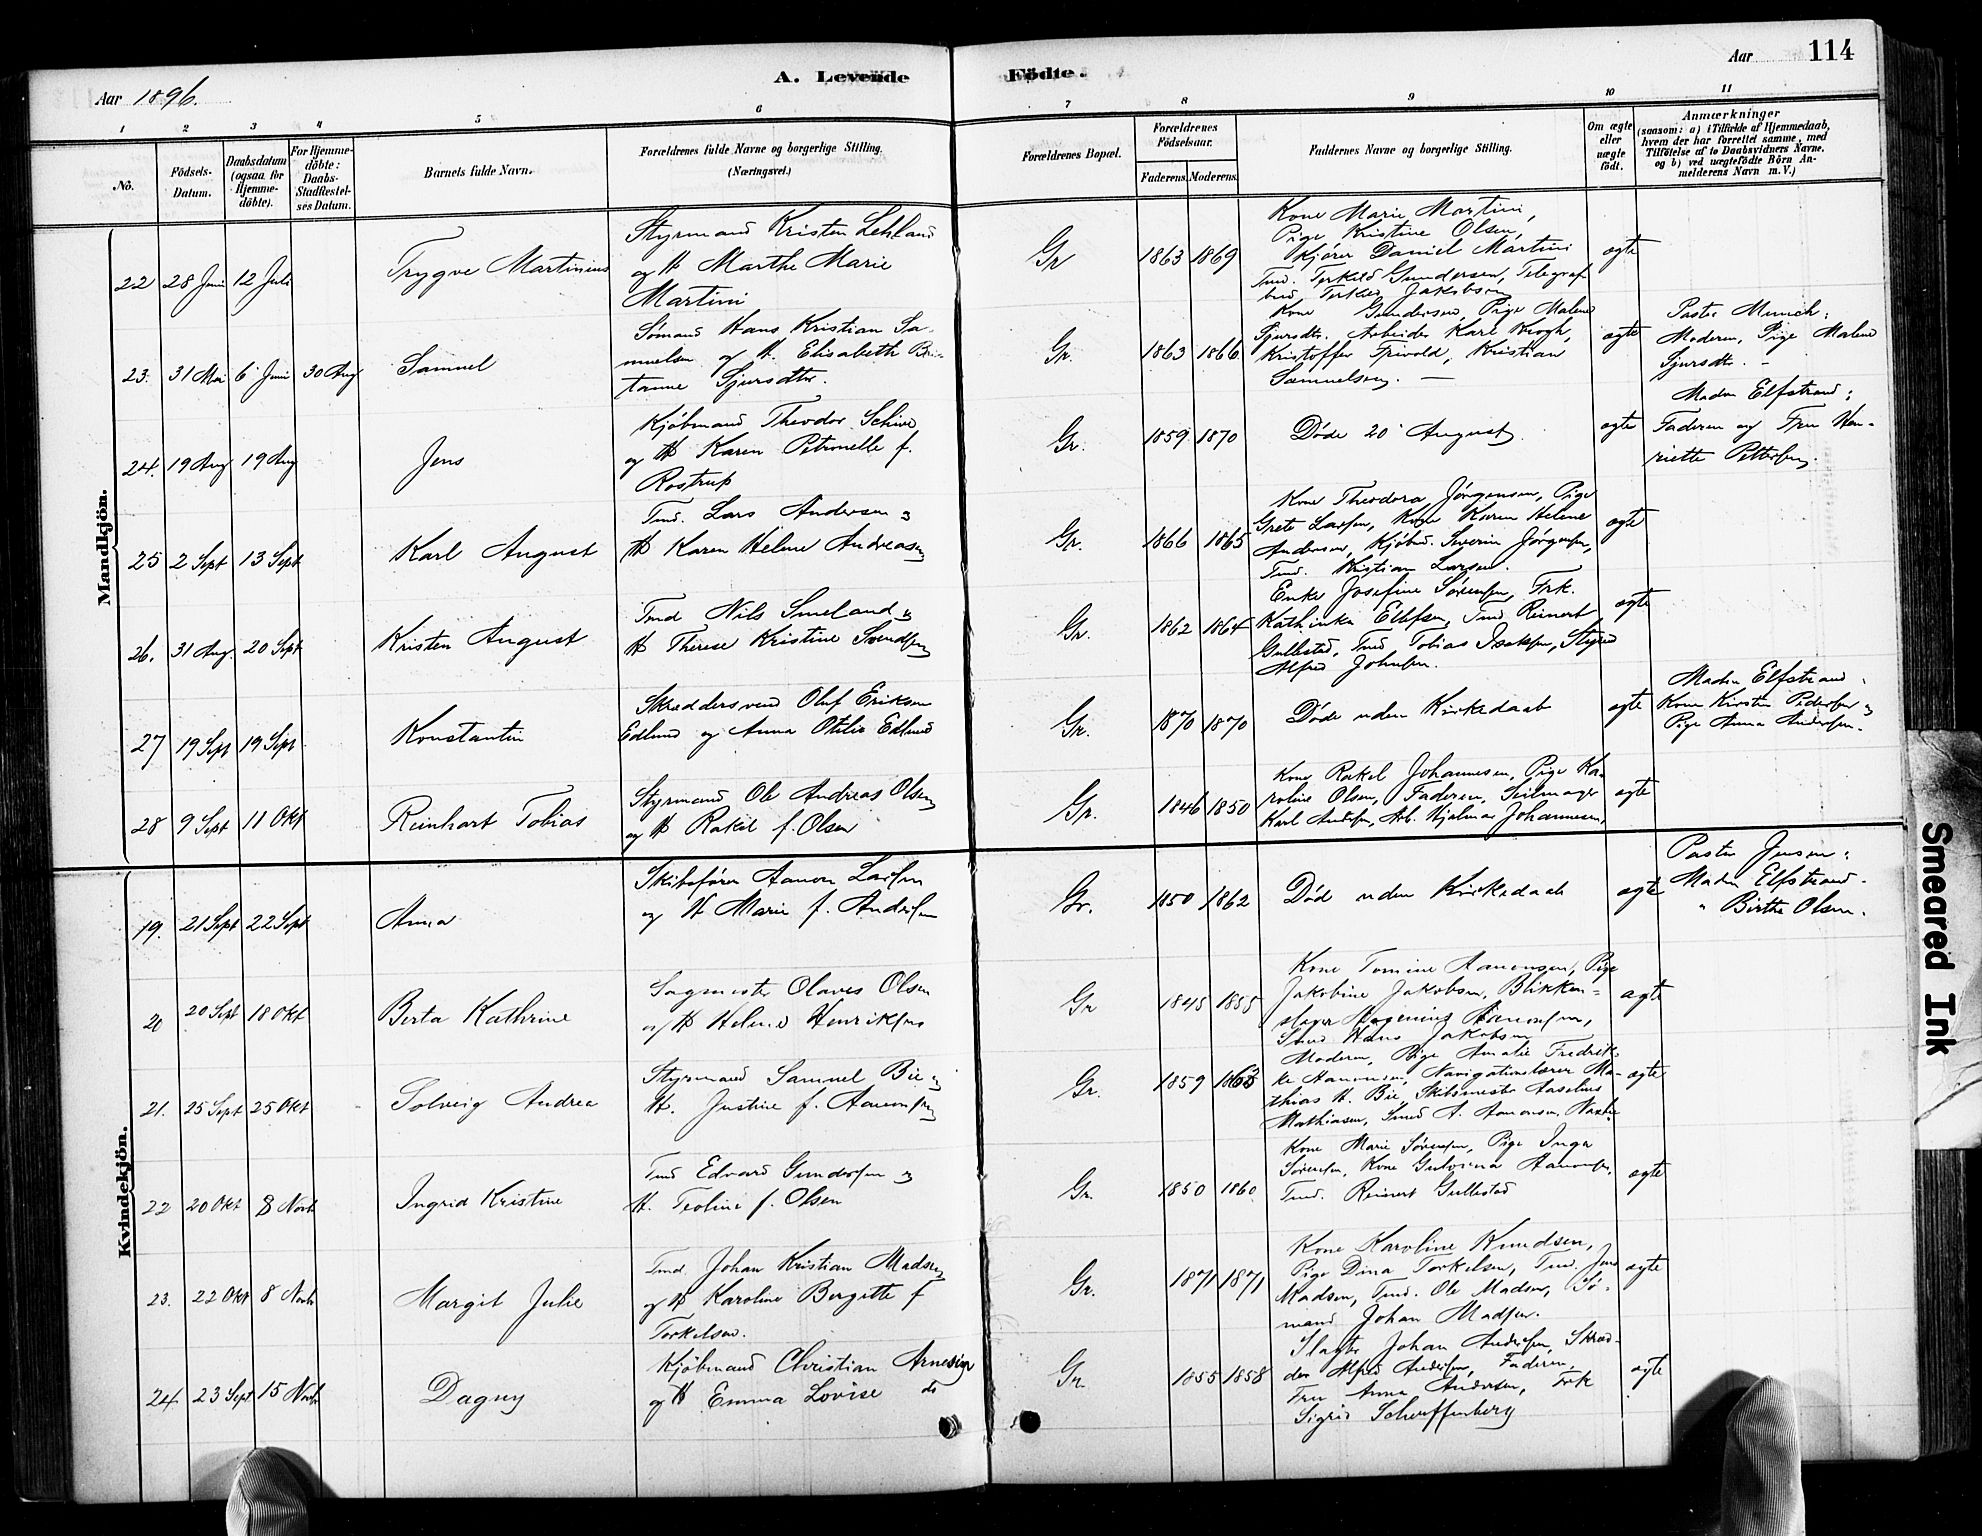 Aar 1896.
A. Levende Födte.
Aar 114
1 2 3 4 5 6 7 8 9 10 11
No.
Födsels-
Datum.
Daabsdatum
(ogsaa for
Hjemme-
döbte).
For Hjemme-
döbte:
Daabs-
Stadfæstel-
ses Datum.
Barnets fulde Navn.
Forældrenes fulde Navne og borgerlige Stilling.
(Næringsvei.)
Forældrenes Bopæl.
Forældrenes
Födselsaar.
Faderens. Moderens.
Faddernes Navne og borgerlige Stilling.
Om ægte
eller
uægte
födt.
Anmærkninger
(saasom: a) i Tilfælde af Hjemmedaab,
hvem der har forrettet samme, med
Tilföielse af to Daabsvidners Navne,
og b) ved uægtefödte Börn An-
melderens Navn m. V.)
Mandkjön.
22 28 Juni 12 Juli
Trygve Martinius
Styrmand Kristen Lehland
og H Marthe Marie
Martini
Gr 1863 1869
Kone Marie Martini,
Pige Kristine Olsen,
Daniel Martini
Tmd. Terkild Gundersen, Telegraf-
bud Terkild Jakobsen
ægte
23. 31 Mai 6 Juni 30 Aug
Samuel
Sømand Hans Kristian Sa-
muelsen og H. Elisabeth Bri-
tanne Sjursdtr.
Gr. 1863 1866
Kone Gundersen, Pige Malene
Sjursdtr. Arbeider Karl Krogh,
Kristoffer, Kristian
Samuelsen. —
ægte
Pastor Munch:
Moderen, Pige Malene
Sjursdtr. —
24. 19 Aug 19 Aug
Jens
Kjøbmand Theodor Schiwe
og H Karen Petronelle f.
Rostrup
Gr. 1859 1870
Døde 20 August
ægte
Madm Elfstrand:
Faderen og Fru Hen-
riette Pettersen.
25 2 Sept 13 Sept
Karl August
Tmd. Lars Andersen og
H Karen Helene Andreasen
Gr. 1866 1865
Kone Theodora Jørgensen, Pige
Grete Larsen, Kone Karen Helene
Andersen, Kjøbmd. Severin Jørgensen,
Tmd. Kristian Larsen.
ægte
26. 31 Aug. 20 Sept
Kristen August
Tmd Nils Smeland og
H Therese Kristine Svendsen
Gr. 1862 1864
Enke Josefine Sørensen, Frk.
Kathinka Ellefsen, Tmd Reinert
Gullestad, Tmd Tobias Isaksen, Styrmd
Alfred Johnsen.
ægte
27 19 Sept 19 Sept
Konstantin
Skræddersvend Oluf Eriksen
Edlund og Anna Otilie Edlund
Gr. 1870 1870
Døde uden Kirkedaab
ægte
Madm Elfstrand:
Kone Kirsten Pedersen og
Pige Anna Andersen.
28 9 Sept 11 Okt
Reinhart Tobias
Styrmand Ole Andreas Olsen
og H Rakel f. Olsen
Gr. 1846 1850
Kone Rakel Johannesen, Pige Ka-
roline Olsen, Faderen, Seilmager
Karl Andersen, Arb. Hjalmar Johannesen.
ægte
Kvindekjön.
19. 21 Sept 22 Sept
Anna
Skibsfører Aanon Larsen
og H Marie f. Andersen
Gr. 1850 1862
Død uden Kirkedaab
ægte
Pastor Jensen:
Madm Elfstrand.
" Birthe Olsen.
20 20 Sept 18 Okt
Berta Kathrine
Sagmester Olaves Olsen
og H Helene Henriksen
Gr 1845 1855
Kone Tomine Aanonsen, Pige
Jakobine Jakobsen, Blikken-
slager Aanonsen,
Smed Hans Jakobsen
ægte
21. 25 Sept 25 Okt
Solveig Andrea
Styrmand Samuel Bie og
H. Justine f. Aanonsen
Gr. 1859 1868
Moderen, Pige Amalie Fredrik-
ke Aanonsen, Navigationslærer Ma-
thias H. Bie, Skibsmester Anselmus
Mathiasen, Smed A. Aanonsen
ægte
22 20 Okt 8 Novb
Ingrid Kristine
Tmd Edvard Gundersen og
H. Teoline f. Olsen
Gr. 1850 1860.
Kone Marie Sørensen, Pige Inga
Sørensen, Kone Gulovina Aanonsen,
Tmd. Reinert Gullestad
ægte
23. 22 Okt 8 Novb
Margit Julie
Tmd. Johan Kristian Madsen
og H Karoline Bergitte f
Torkelsen.
Gr. 1871 1871
Kone Karoline Knudsen,
Pige Dina Torkelsen, Tmd. Jens
Madsen, Tmd. Ole Madsen, Sø-
mand Johan Madsen.
ægte
24 23 Sept 15 Novb
Dagny
Kjøbmand Christian Arnesen
og H Emma Lovise
Gr. 1855 1858
Slagter Johan Andersen, Skræd-
der Alfred Andersen, Faderen,
Fru Anna Andersen, Frk
Sigrid Scheuffenberg
ægte
Smeared Ink